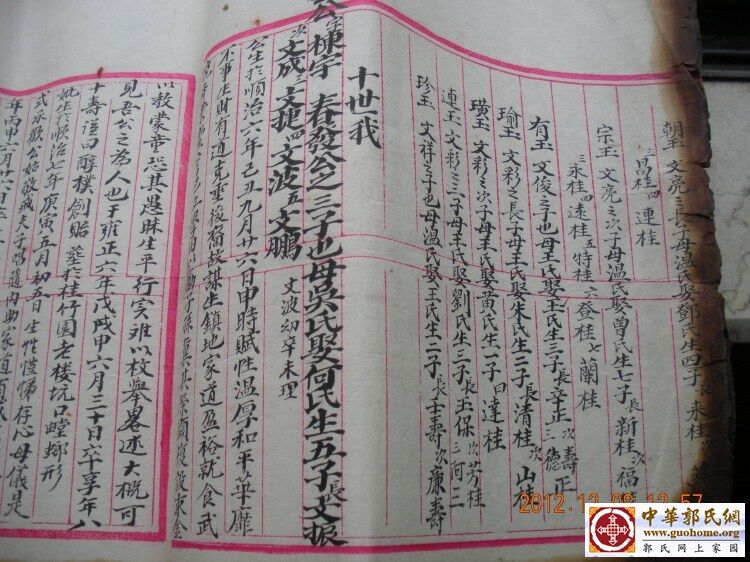 朝玉 文亮之長子母溫氏娶鄧氏生四子長永桂
三昌桂四連桂
宗玉 文亮之次子母溫氏娶曾氏生七子長新桂次福
三永桂四遠桂五特桂六登桂七蘭桂
有玉 文俊之子也母王氏娶王氏生三子長辛正次壽正
三德
瑜玉 文彩之長子母王氏娶朱氏生二子長清桂次山桂
璜玉 文彩之次子母王氏娶黃氏生一子曰達桂
連玉 文彩之三子母王氏娶劉氏生三子長玉保次芳桂
三何二
珍玉 文祥之子也母溫氏娶王氏生二子長士壽次康壽
十世我
公字棟宇 春發公之三子也母吳氏娶何氏生五子長文振
次文成三文捷四文波五文鵬
文波幼卒未理
公生於順治六年己丑九月廿六日申時賦性溫厚和平華靡
不事生財有道克重後裔故謀生鎮地家道盈裕就食武
以教蒙章恐其愚昧生平行实难以枚舉畧述大概可
見吾公之為人也于雍正六年戊戌甲六月三十日卒享年八
十壽謚曰醇樸創貽 葬於桂竹園老楼坑口螳螂形
妣生於順治七年庚寅五月初五日生性愷悌存心母儀是
式承歡公姑敬戒夫子唱隨內助家道
年丙申六月廿六日
2012.12.08 13:57
中華郭氏網
www.guohome.org
郭氏网上家园